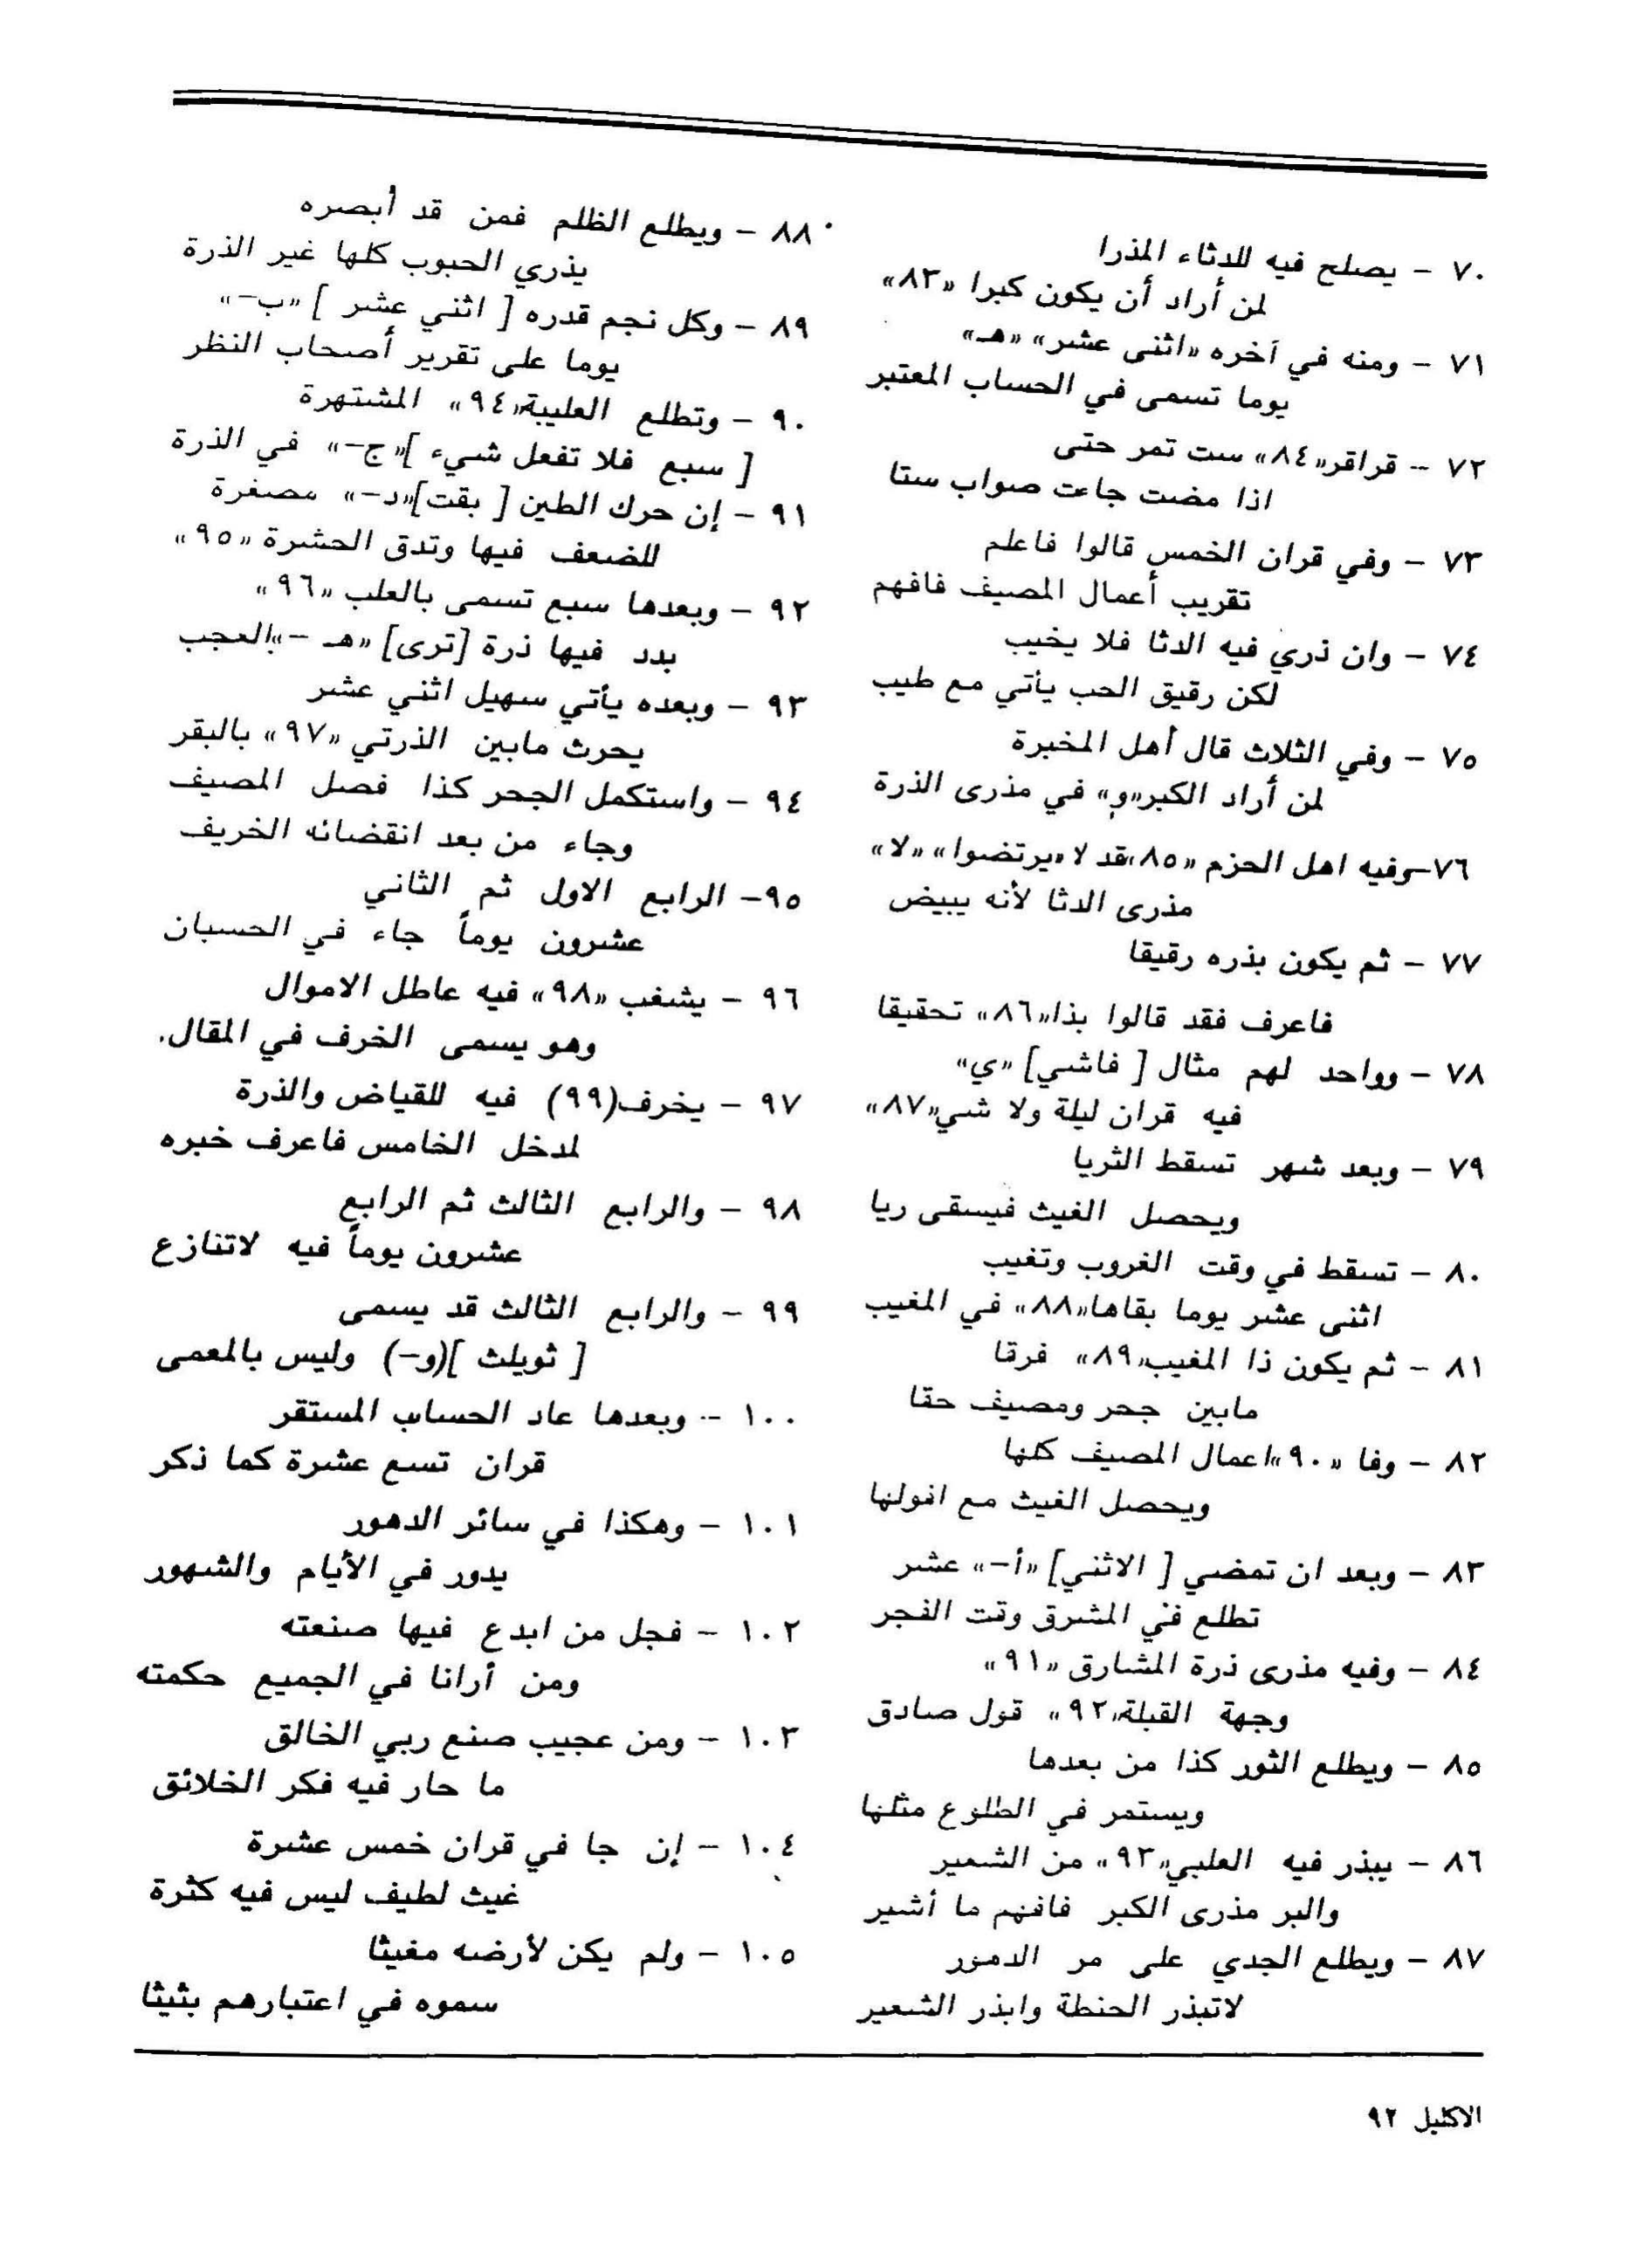 ٧٠ – يصلح فيه للدثاء المذرا
لمن أراد أن يكون كبرا «٨٣»
٧١ – ومنه في آخره «اثنى عشر» «هـ»
يوما تسمى في الحساب المعتبر
٧٢ – قراقر«٨٤» ست تمر حتى
اذا مضت جاءت صواب ستا
٧٣ – وفي قران الخمس قالوا فاعلم
تقريب أعمال المصيف فافهم
٧٤ – وان ذري فيه الدثا فلا يخيب
لكن رقيق الحب يأتي مع طيب
٧٥ – وفي الثلاث قال أهل المخبرة
لمن أراد الكبر«و» في مذرى الذرة
٧٦–وفيه اهل الحزم «٨٥»قد لا «يرتضوا» «لا»
مذرى الدثا لأنه يبيض
٧٧ – ثم يكون بذره رقيقا
فاعرف فقد قالوا بذا«٨٦» تحقيقا
٧٨ – وواحد لهم مثال [ فاشي] «ي»
فيه قران ليلة ولا شي«٨٧»
٧٩ – وبعد شهر تسقط الثريا
ويحصل الغيث فيسقى ريا
٨٠ – تسقط في وقت الغروب وتغيب
اثنى عشر يوما بقاها«٨٨» في المغيب
٨١ – ثم يكون ذا المغيب«٨٩» فرقا
مابين جحر ومصيف حقا
٨٢ – وفا «٩٠»اعمال المصيف كلها
ويحصل الغيث مع افولها
٨٣ – وبعد ان تمضي [ الاثني] «أ–» عشر
تطلع في المشرق وقت الفجر
٨٤ – وفيه مذرى ذرة المشارق «٩١»
وجهة القبلة«٩٢» قول صادق
٨٥ – ويطلع الثور كذا من بعدها
ويستمر في الطلوع مثلها
٨٦ – يبذر فيه العلبي«٩٣» من الشعير
والبر مذرى الكبر فافهم ما أشير
٨٧ – ويطلع الجدي على مر الدهور
لاتبذر الحنطة وابذر الشعير
٨٨ – ويطلع الظلم فمن قد أبصره
يذري الحبوب كلها غير الذرة
٨٩ – وكل نجم قدره [ اثني عشر ] «ب–»
يوما على تقرير أصحاب النظر
٩٠ – وتطلع العليبة«٩٤» المشتهرة
[ سبع فلا تفعل شيء ]«ج–» في الذرة
٩١ – إن حرك الطين [ بقت]«د–» مصفرة
للضعف فيها وتدق الحشرة «٩٥»
٩٢ – وبعدها سبع تسمى بالعلب «٩٦»
بدد فيها ذرة [ترى] «هـ –»بالعجب
٩٣ – وبعده يأتي سهيل اثني عشر
يحرث مابين الذرتي «٩٧» بالبقر
٩٤ – واستكمل الجحر كذا فصل المصيف
وجاء من بعد انقضائه الخريف
٩٥– الرابع الاول ثم الثاني
عشرون يوماً جاء في الحسبان
٩٦ – يشغب «٩٨» فيه عاطل الاموال
وهو يسمى الخرف في المقال.
٩٧ – يخرف(٩٩) فيه للقياض والذرة
لمدخل الخامس فاعرف خبره
٩٨ – والرابع الثالث ثم الرابع
عشرون يوماً فيه لاتنازع
٩٩ – والرابع الثالث قد يسمى
[ ثويلث ](و–) وليس بالمعمى
١٠٠ – وبعدها عاد الحساب المستقر
قران تسع عشرة كما ذكر
١٠١ – وهكذا في سائر الدهور
يدور في الأيام والشهور
١٠٢ – فجل من ابدع فيها صنعته
ومن أرانا في الجميع حكمته
١٠٣ – ومن عجيب صنع ربي الخالق
ما حار فيه فكر الخلائق
١٠٤ – إن جا في قران خمس عشرة
غيث لطيف ليس فيه كثرة
١٠٥ – ولم يكن لأرضه مغيثا
سموه في اعتبارهم بثيثا
الاكليل ٩٢